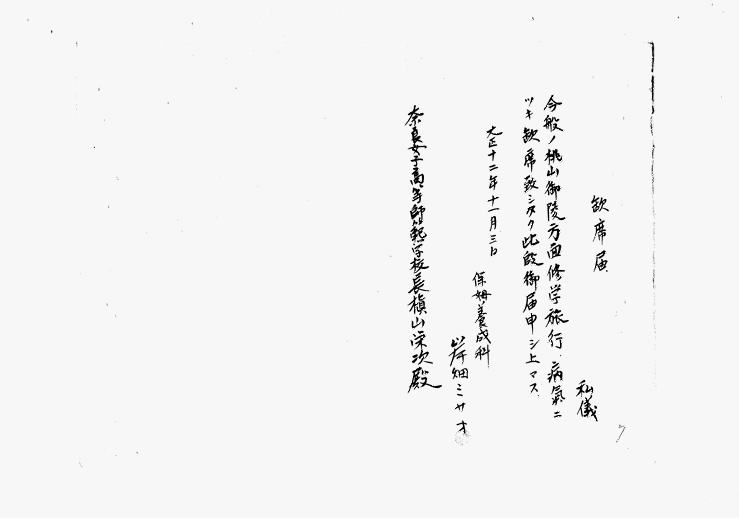 欠席届
私儀
今般ノ桃山御陵方面修学旅行、病氣ニ
ツキ欠席致シタク此段御届申シ上マス
大正十二年十一月三日
保姆養成科
岸畑ミサオ
奈良女子高等師範学校長槇山栄次殿